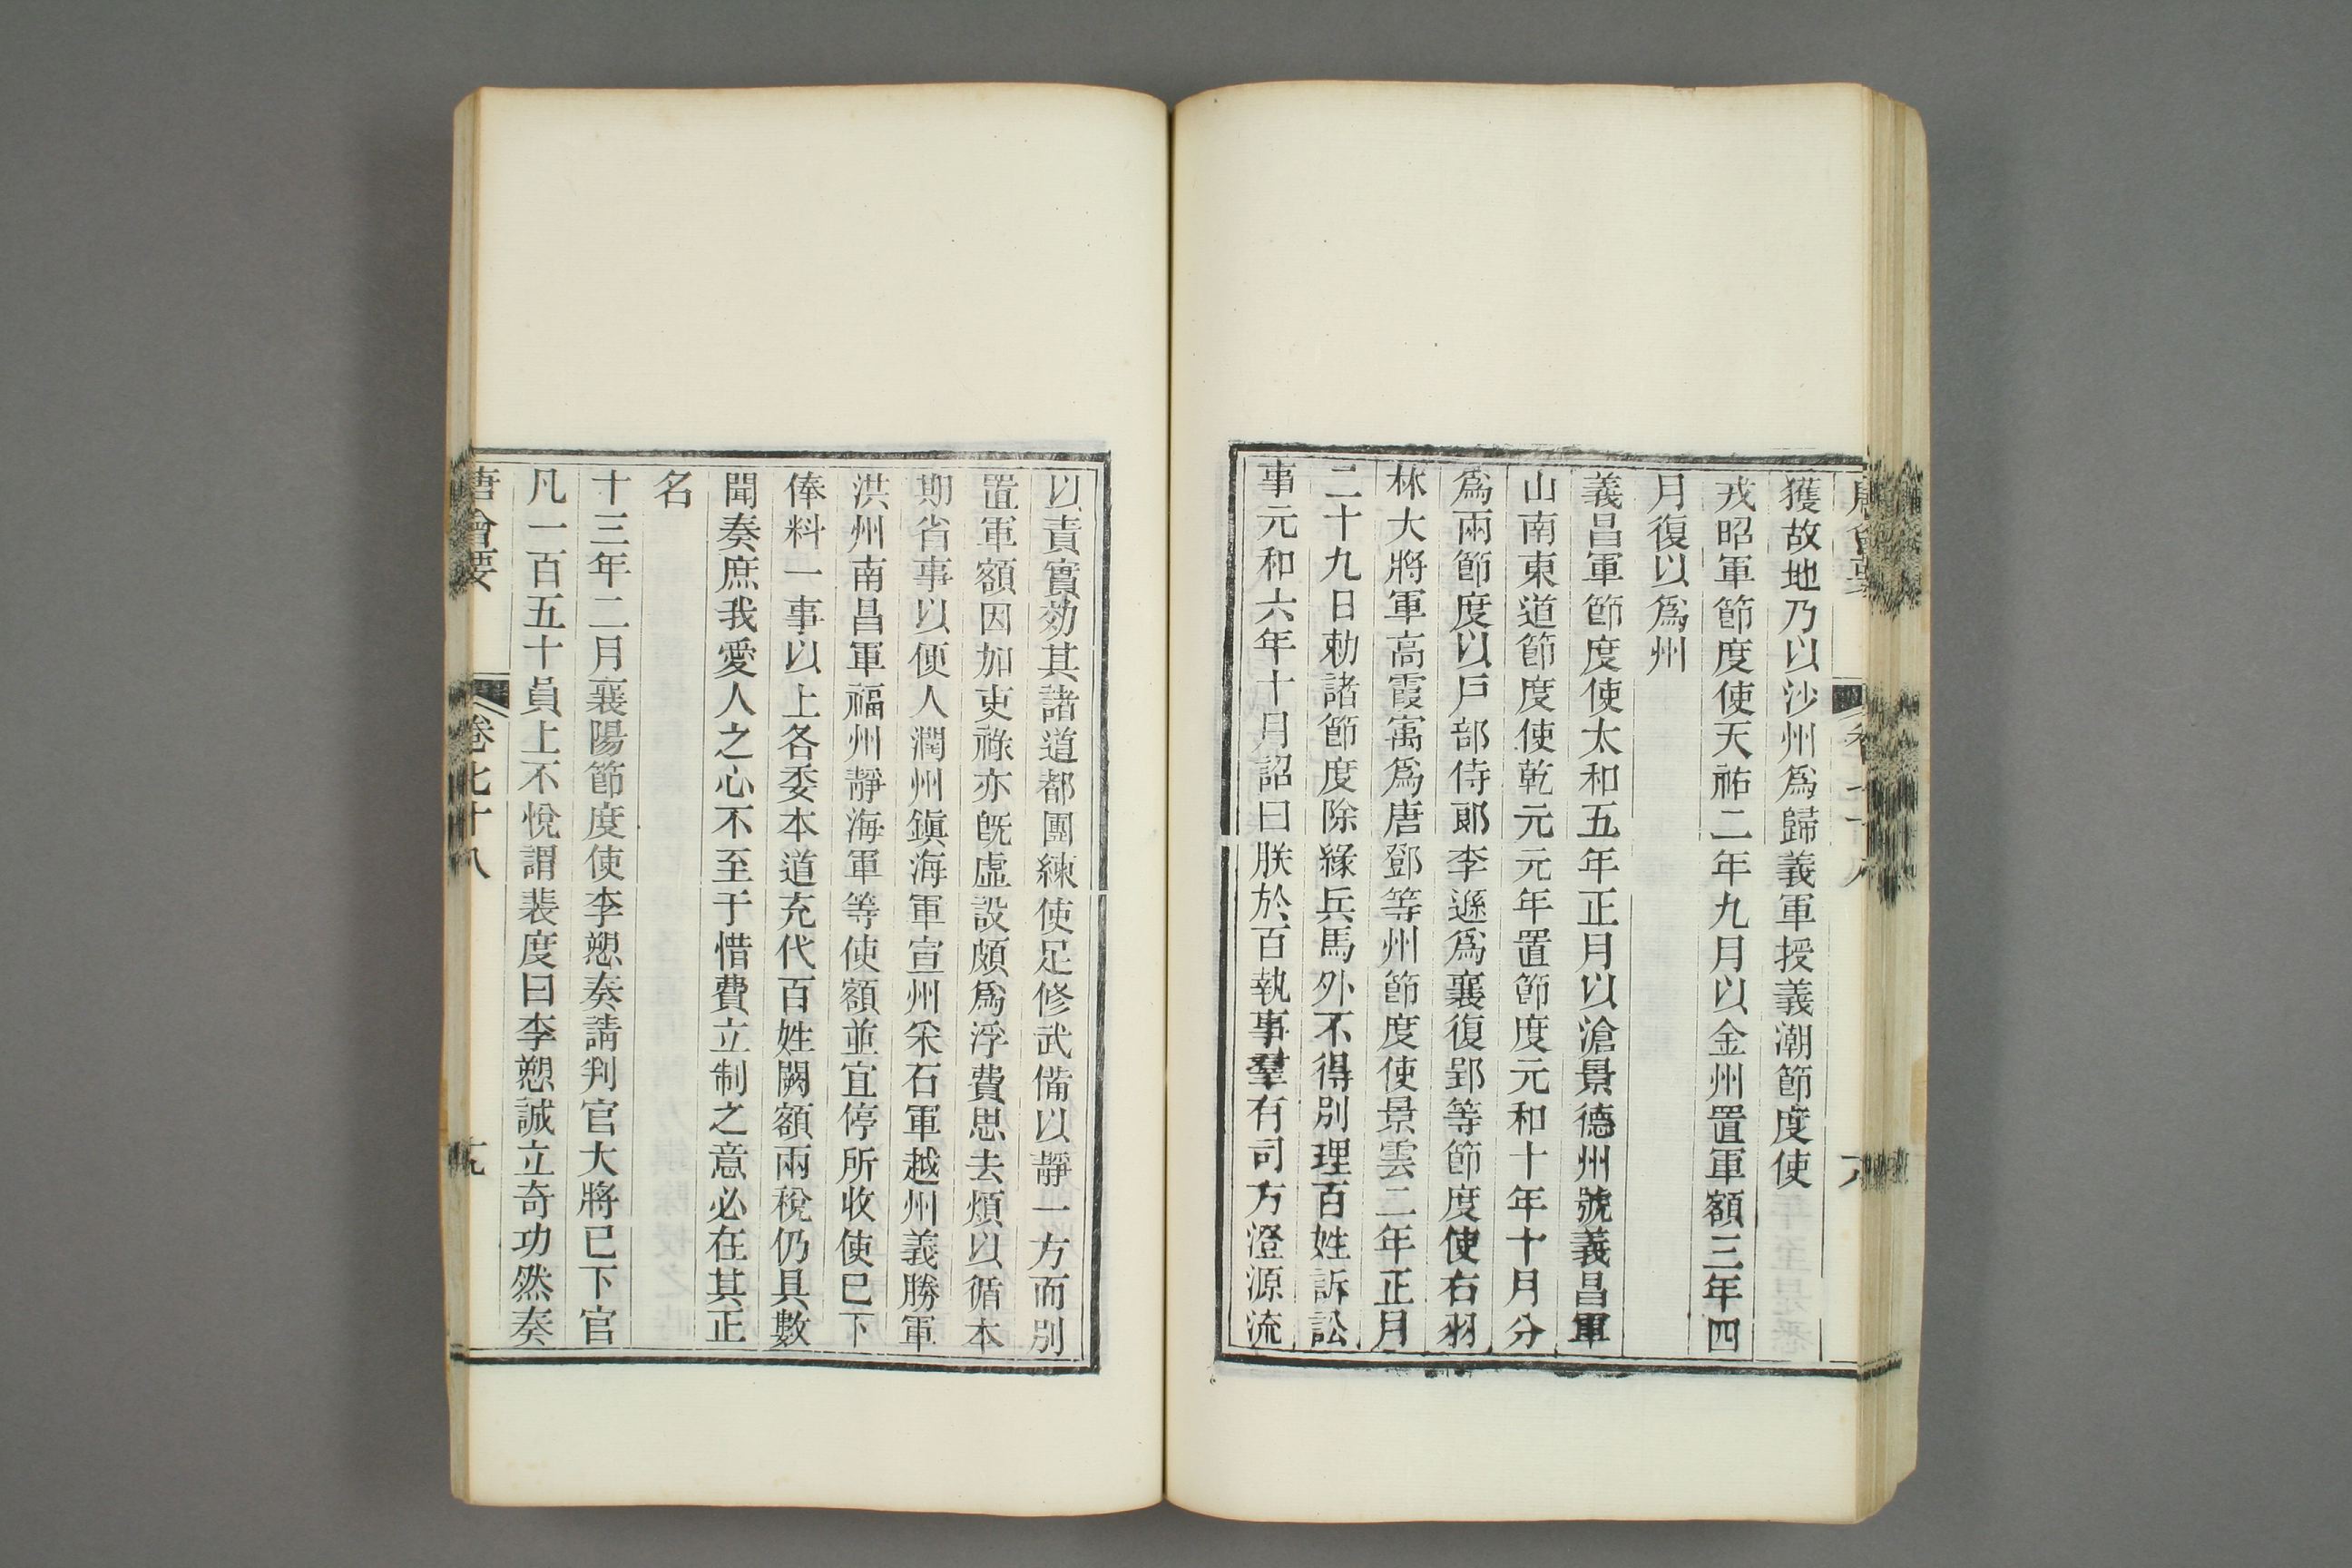 獲故地乃以沙州爲歸義軍授義潮節度使
戎昭軍節度使天祐二年九月以金州置軍額三年四
月復以爲州
義昌軍節度使太和五年正月以滄景德州號義昌軍
山南東道節度使乾元元年置節度元和十年十月分
爲兩節度以戸部侍郎李遜爲襄復郢等節度使右羽
林大將軍高霞寓爲唐鄧等州節度使景雲二年正月
二十九日勅諸節度除緣兵馬外不得別理百姓訴訟
事元和六年十月詔曰朕於百執事羣有司方澄源流
以責實効其諸道都團練使足修武備以靜一方而別
置軍額因加吏祿亦旣虛設頗爲浮費思去煩以循本
期省事以便人潤州鎭海軍宣州采石軍越州義勝軍
洪州南昌軍福州靜海軍等使額並宜停所收使已下
俸料一事以上各委本道充代百姓闕額兩稅仍具數
聞奏庶我愛人之心不至于惜費立制之意必在其正
名
十三年二月襄陽節度使李愬奏請判官大將已下官
凡一百五十員上不悅謂裴度曰李愬誠立奇功然奏
唐會要 卷七十八